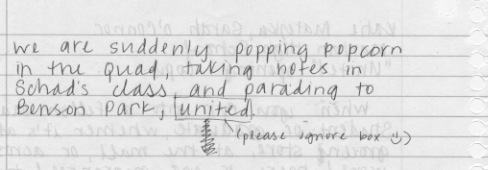 we are suddenly popping popcorn
in the quad, taking notes in
Schad's class, and parading to
Benson Park, united.
(please ignore box :))